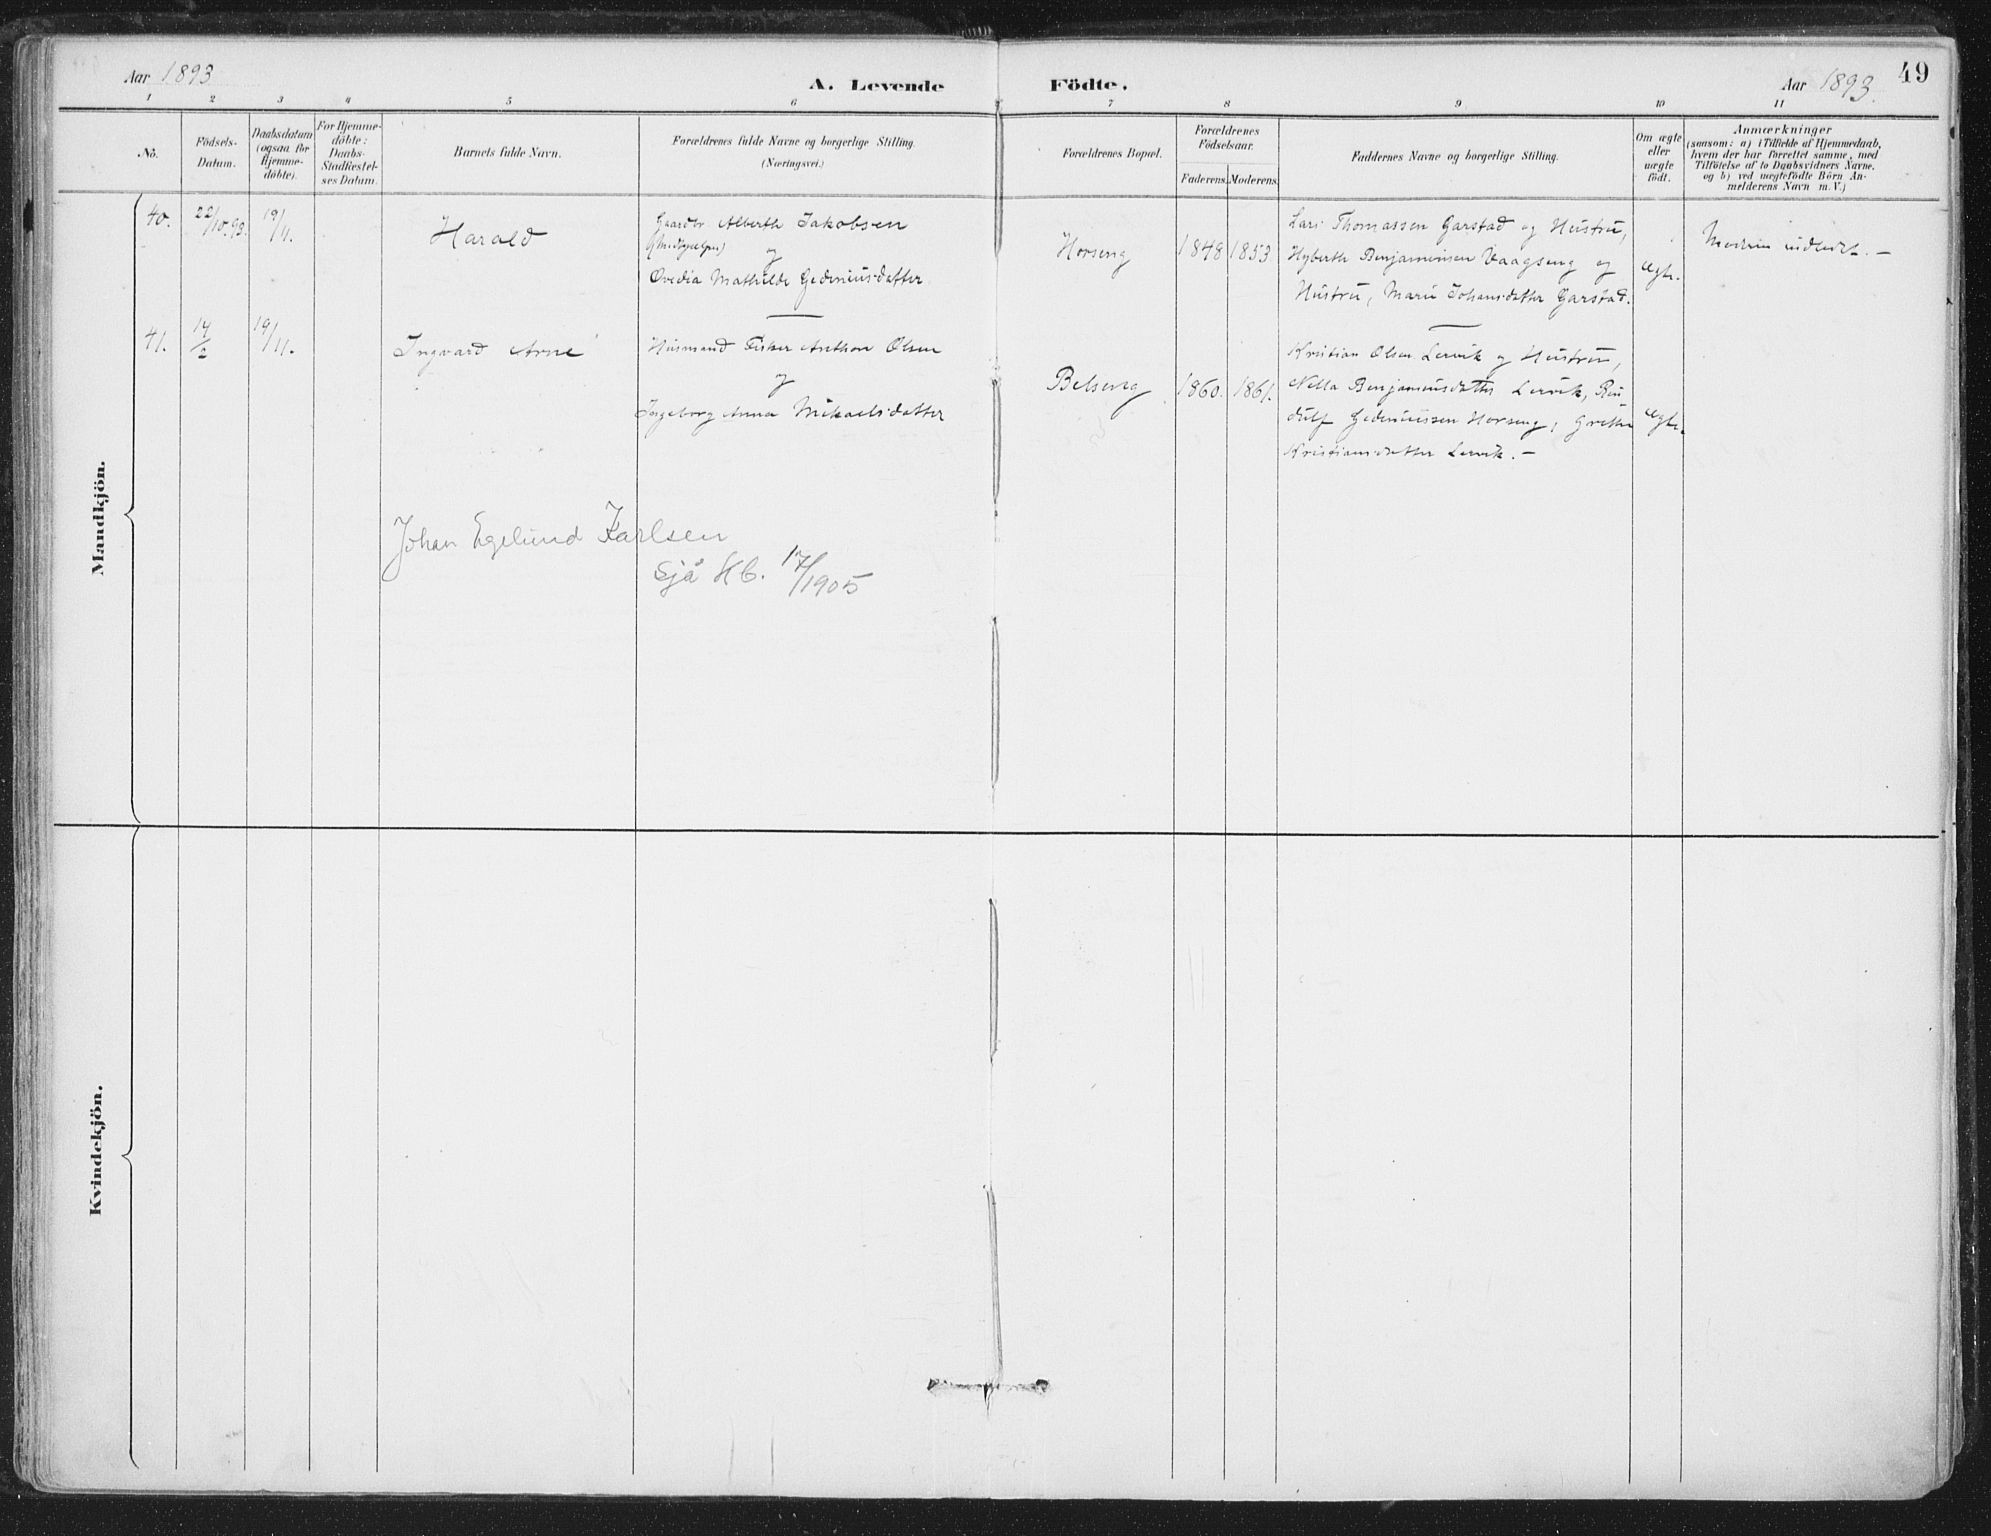 Aar 1893
A. Levende Födte.
Aar 1893.
49
1 2 3 4 5 6 7 8 9 10 11
No.
Födsels-
Datum.
Daabsdatum
(ogsaa for
Hjemme-
döbte).
For Hjemme-
döbte:
Daabs-
Stadfæstel-
ses Datum.
Barnets fulde Navn.
Forældrenes fulde Navne og borgerlige Stilling.
(Næringsvei.)
Forældrenes Bopæl.
Forældrenes
Födselsaar.
Faderens. Moderens.
Faddernes Navne og borgerlige Stilling.
Om ægte
eller
uægte
födt.
Anmærkninger
(saasom: a) i Tilfælde af Hjemmedaab,
hvem der har forrettet samme, med
Tilföielse af to Daabsvidners Navne.
og b) ved uægtefödte Börn An-
melderens Navn m. V.)
Mandkjön.
40. 22/10.93. 19/11.
Harald
Gaardbr Alberth Jakobsen
og
Ovedia Mathilde Gedeniusdatter
Horseng
1848 1853
Lars Thomassen Garstad og Hustru,
Hyberth Benjaminsen Vaagseng og
Hustru, Marie Johansdatter Garstad.
Ægte.
Moderen indledt. –
41. 14/2 19/11.
Ingvard Arne
Husmand Fisker Anthon Olsen
og
Ingeborg Anna Mikaelsdatter
Belseng
1860. 1861.
Kristian Olsen Lervik og Hustru,
Nella Benjaminsdatter Lervik, Ru-
dulf Gedeniussen Horseng, Grethe
Kristiansdatter Lervik. –
Ægte.
Johan Egelund Karlsen
Sjå Kb. 17/1905
Kvindekjön.